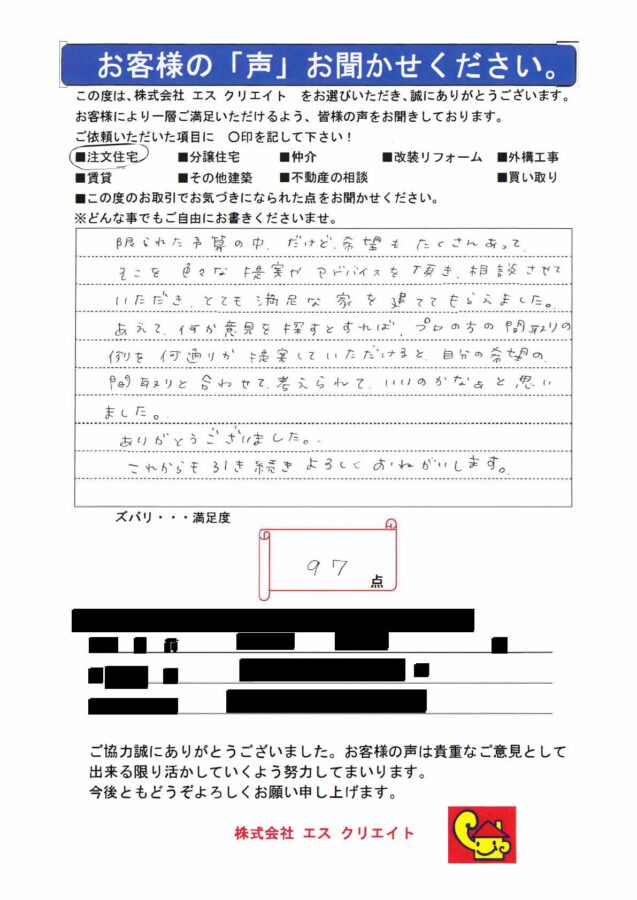 お客様の「声」お聞かせください。
この度は、株式会社 エス クリエイト をお選びいただき、誠にありがとうございます。
お客様により一層ご満足いただけるよう、皆様の声をお聞きしております。
ご依頼いただいた項目に ○印を記して下さい！
■注文住宅 ■分譲住宅 ■仲介 ■改装リフォーム ■外構工事
■賃貸 ■その他建築 ■不動産の相談 ■買い取り
■この度のお取引でお気づきになられた点をお聞かせください。
※どんな事でもご自由にお書きくださいませ。
限られた予算の中、だけど、希望も たくさんあって、
そこを 色々な 提案や アドバイスを 頂き、相談させて
いただき、とても 満足な 家 を 建ててもらえました。
あえて、何か意見を 探すとすれば、プロの方の 間取りの
例を 何通りか 提案していただけると、自分の希望の、
間取りと 合わせて、考えられて、いいのかなぁと思い
ました。
ありがとうございました。
これからも 引き続き よろしく おねがいします。
ズバリ・・・満足度
97 点
ご協力誠にありがとうございました。お客様の声は貴重なご意見として
出来る限り活かしていくよう努力してまいります。
今後ともどうぞよろしくお願い申し上げます。
株式会社 エス クリエイト